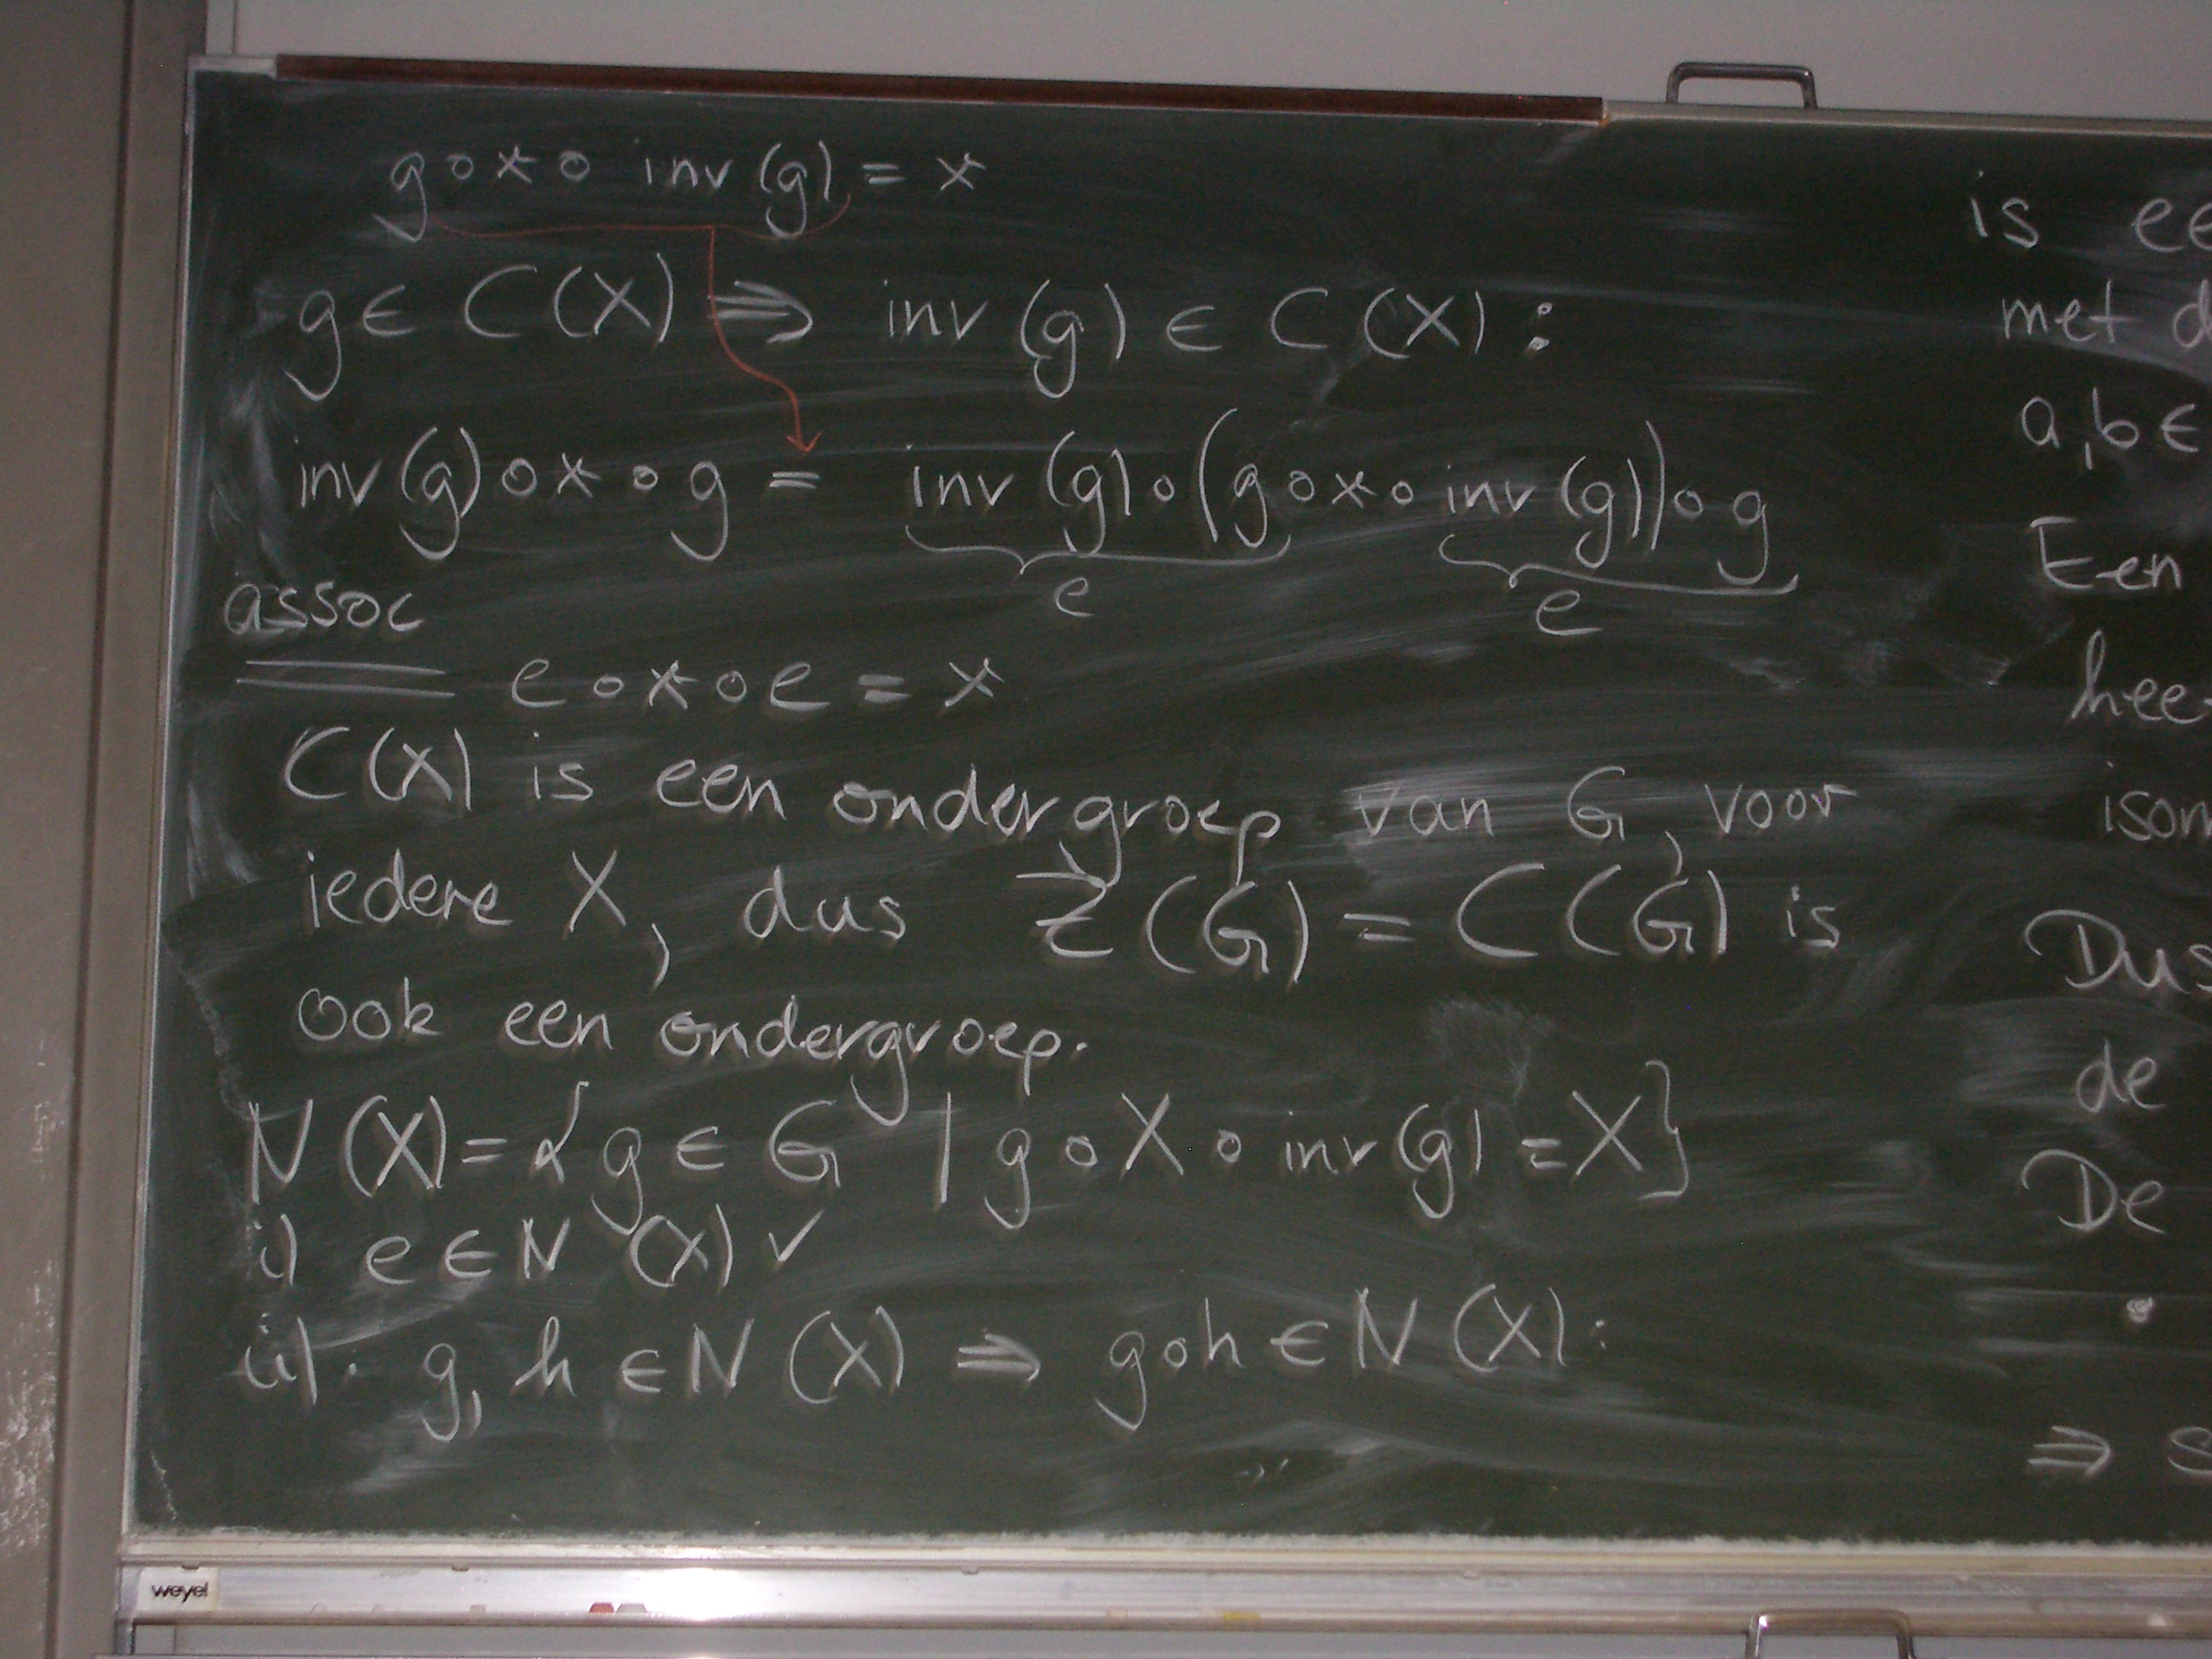 g∘x∘ inv(g) = x
g ∈ C(X) ⇒ inv(g) ∈ C(X):
inv(g)∘x∘g = inv(g)∘(g∘x∘inv(g))∘g
e e
assoc
= e∘x∘e = x
C(X) is een ondergroep van G, voor
iedere X, dus Z(G) = C(G) is
ook een ondergroep.
N(X) = {g ∈ G | g∘X∘inv(g) = X}
i) e ∈ N(X) ✓
ii). g, h ∈ N(X) ⇒ g∘h ∈ N(X):
is
met
a,b ∈
Een
Dus
de
De
•
⇒
weyel